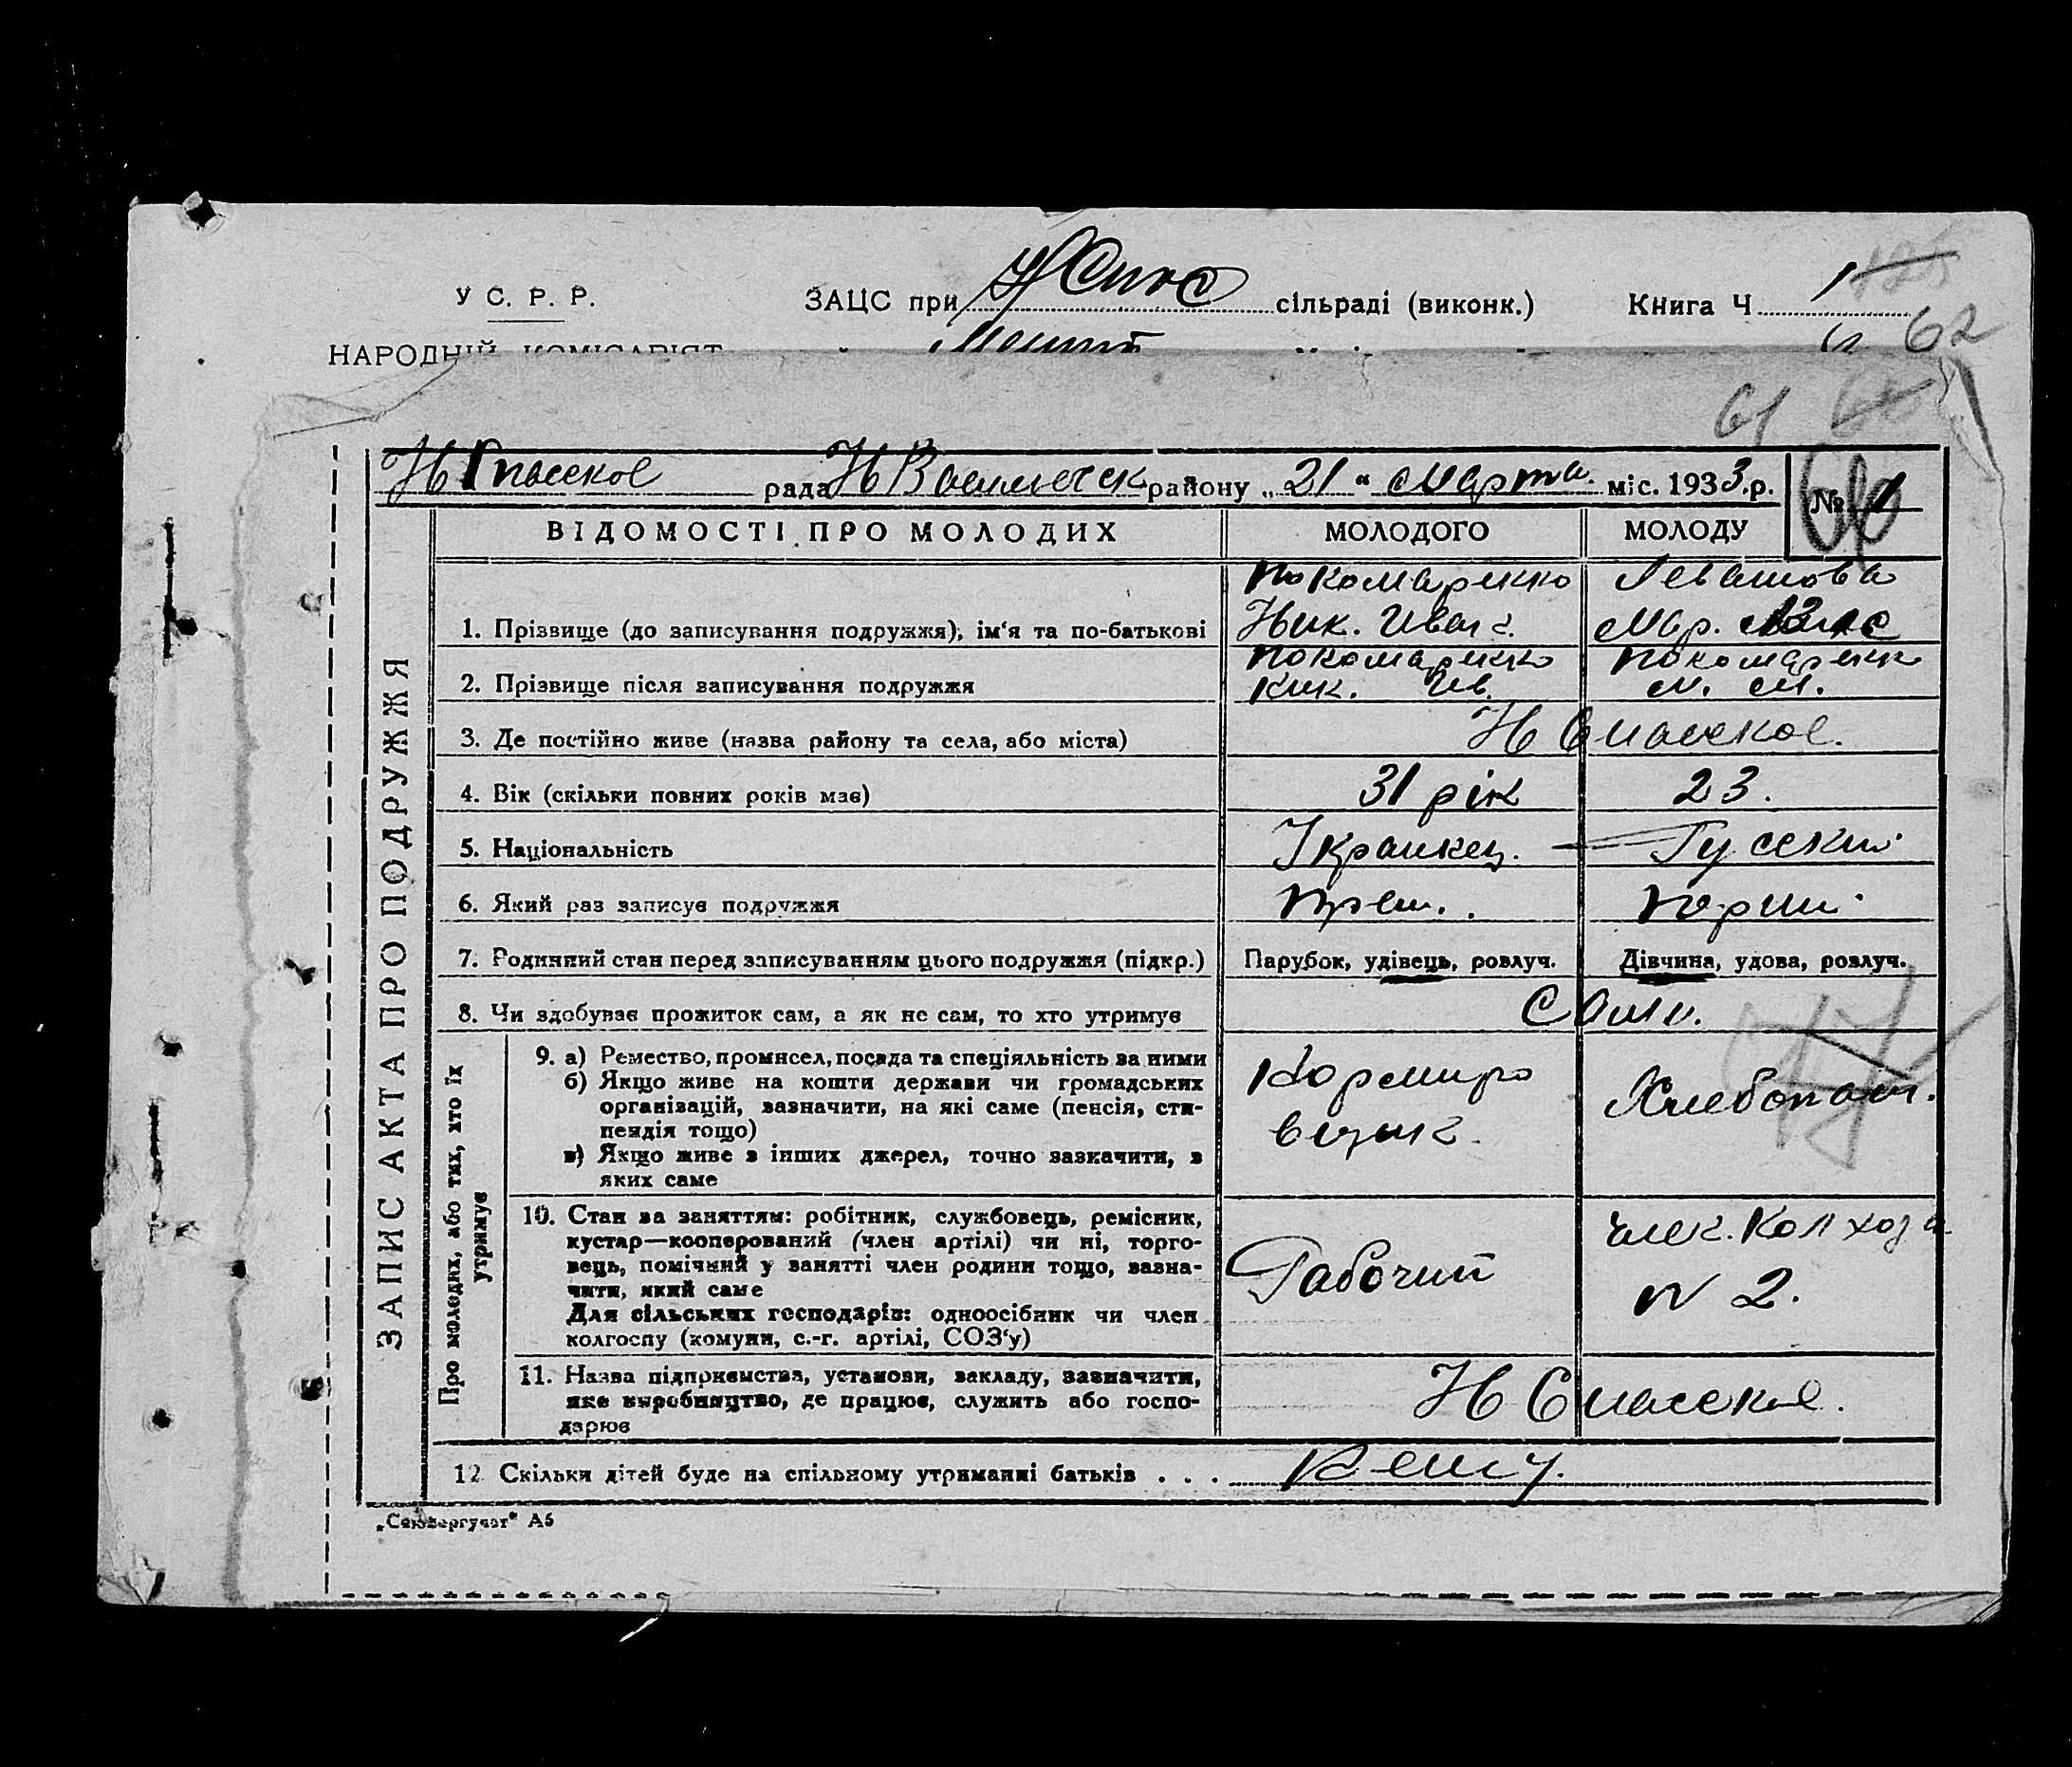 У С. Р. Р.
ЗАЦС при сільраді (виконк.)
Книга Ч 1
62
НАРОДНІЙ КОМІСАРІЯТ
61
Н Спасское рада Н Васильевск району „ 21 " Марта міс. 1933.р.
№ 1
ВІДОМОСТІ ПРО МОЛОДИХ МОЛОДОГО МОЛОДУ
ЗАПИС АКТА ПРО ПОДРУЖЖЯ
Левашова
1. Прізвище (до записування подружжя), ім'я та по-батькові Ник. Иван. Мар.
2. Прізвище після записування подружжя
Ник. Ив. М. М.
3. Де постійно живе (назва району та села, або міста) Н Спасское.
4. Вік (скільки повних років має) 31 рік 23.
5. Національність Украинец. Русский
6. Який раз записує подружжя
7. Родинний стан перед записуванням цього подружжя (підкр.) Парубок, удівець, розлуч. Дівчина, удова, розлуч.
8. Чи здобуває прожиток сам, а як не сам, то хто утримує Сами.
Про молодих, або тих, хто їх
утримує
9. а) Ремество, промисел, посада та спеціяльність за ними
б) Якщо живе на кошти держави чи громадських
організацій, зазначити, на які саме (пенсія, сти-
пендія тощо)
в) Якщо живе з інших джерел, точно зазначити, з
яких саме
Хлебопаш.
10. Стан за заняттям: робітник, службовець, ремісник,
кустар—кооперований (член артілі) чи ні, торго-
вець, помічний у занятті член родини тощо, зазна-
чити, який саме
Для сільських господарів: одноосібник чи член
колгоспу (комуни, с.-г. артілі, СОЗ'у)
Рабочий
член. Колхоза
N 2.
11. Назва підприємства, установи, закладу, зазначити,
яке виробництво, де працює, служить або госпо-
дарює
Н Спасское.
12 Скільки дітей буде на спільному утриманні батьків . . .
А5